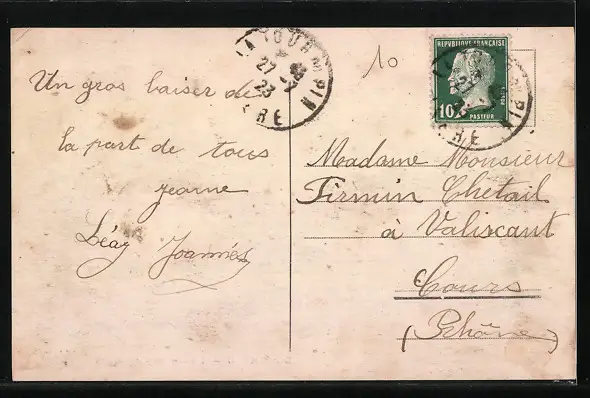 Un gros baiser de
la part de tous
Jeanne
Léay Joannès
LA TOUR DU PIN
27 -7
23
ISÈRE
10
REPUBLIQUE FRANÇAISE
10c
POSTES
PASTEUR
Madame Monsieur
Firmin Chetail
à Valiscant
Cours
(Rhône)